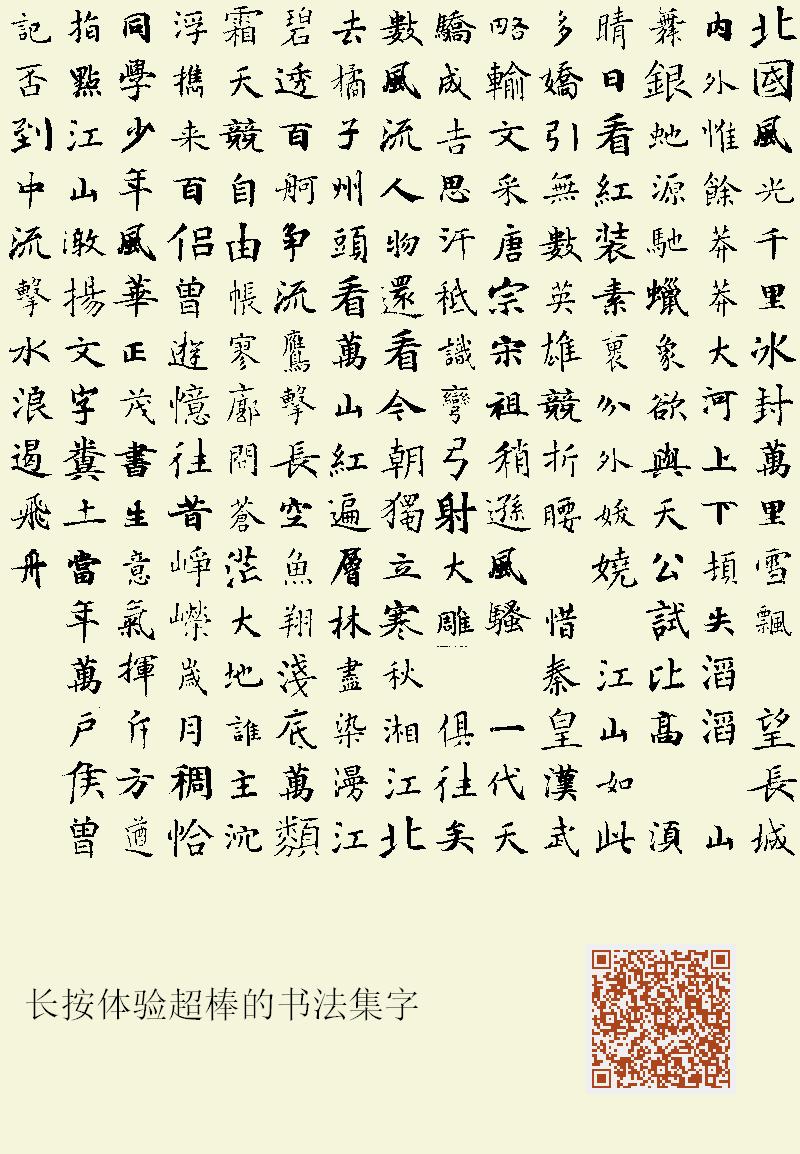 北國風光千里冰封萬里雪飄 望長城
内外惟餘莽莽大河上下頓失滔滔 山
舞銀虵源馳蠟象欲與天公試比高 須
晴日看紅装素裹分外娥嬈 江山如此
多嬌引無數英雄競折腰 惜秦皇漢武
略輸文采唐宗宋祖稍遜風騷 一代天
驕成吉思汗祗識彎弓射大雕 俱往矣
數風流人物還看今朝獨立寒秋湘江北
去橘子州頭看萬山紅遍層林盡染漫江
碧透百舸争流鷹擊長空魚翔淺底萬類
霜天競自由帳寥廓問蒼茫大地誰主沉
浮攜来百侣曾遊憶往昔崢嶸歲月稠恰
同學少年風華正茂書生意氣揮斥方遒
指點江山激揚文字糞土當年萬户侯曾
記否到中流擊水浪遏飛舟
长按体验超棒的书法集字